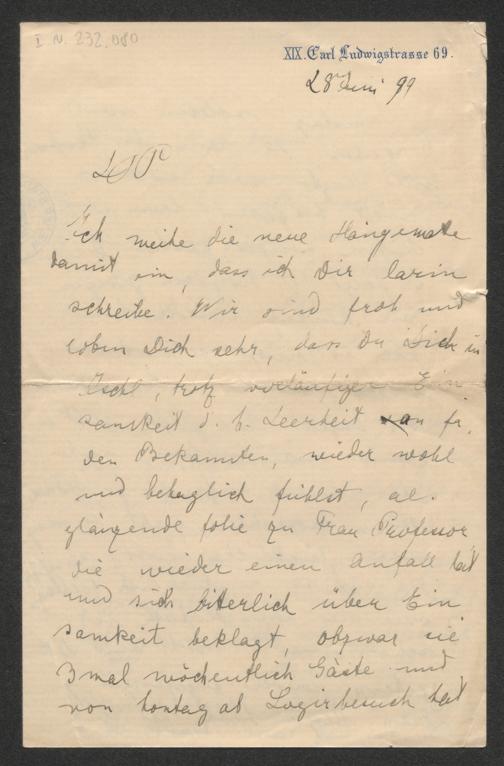 I. N. 232.080
XIX. Carl Ludwigstrasse 69.
28 Juni 99
L P
Ich weihe die neue Hängematte
damit ein, dass ich Dir darin
schreibe. Wir sind froh und
loben Dich sehr, dass Du Dich in
Ischl, trotz vorläufiger Ein
samkeit d. h. Leerheit an fr.
den Bekannten, wieder wohl
und behaglich fühlst, als
glänzende folie zu Frau Professor
die wieder einen Anfall hat
und sich bitterlich über Ein
samkeit beklagt, obzwar sie
3 mal wöchentlich Gäste und
von Sontag ab Logirbesuch hat